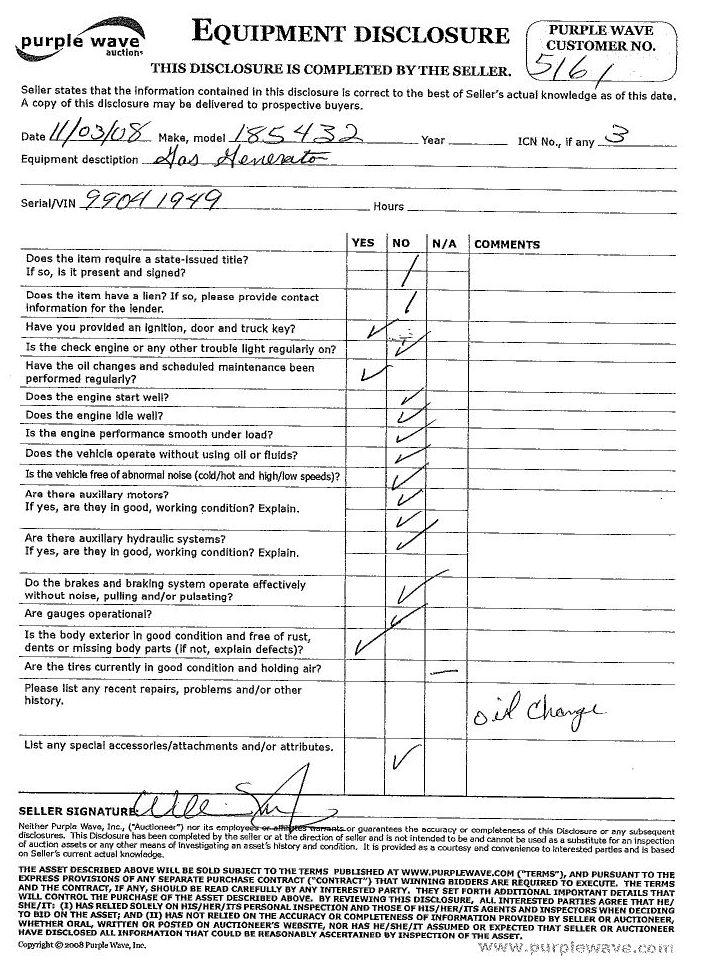 purple wave
auctions
EQUIPMENT DISCLOSURE
PURPLE WAVE
CUSTOMER NO.
5161
THIS DISCLOSURE IS COMPLETED BY THE SELLER.
Seller states that the information contained in this disclosure is correct to the best of Seller's actual knowledge as of this date.
A copy of this disclosure may be delivered to prospective buyers.
Date 11/03/08 Make, model 185432 Year ICN No., if any 3
Equipment desctiption Gas Generator
Serial/VIN 99041949 Hours
YES NO N/A COMMENTS
Does the item require a state-issued title?
If so, is it present and signed?
Does the item have a lien? If so, please provide contact
information for the lender.
Have you provided an ignition, door and truck key?
Is the check engine or any other trouble light regularly on?
Have the oil changes and scheduled maintenance been
performed regularly?
Does the engine start well?
Does the engine idle well?
Is the engine performance smooth under load?
Does the vehicle operate without using oil or fluids?
Is the vehicle free of abnormal noise (cold/hot and high/low speeds)?
Are there auxillary motors?
If yes, are they in good, working condition? Explain.
Are there auxillary hydraulic systems?
If yes, are they in good, working condition? Explain.
Do the brakes and braking system operate effectively
without noise, pulling and/or pulsating?
Are gauges operational?
Is the body exterior in good condition and free of rust,
dents or missing body parts (if not, explain defects)?
Are the tires currently in good condition and holding air?
Please list any recent repairs, problems and/or other
history.
oil Change
List any special accessories/attachments and/or attributes.
SELLER SIGNATURE
Neither Purple Wave, Inc., ("Auctioneer") nor its employees or affiliates warrants or guarantees the accuracy or completeness of this Disclosure or any subsequent
disclosures. This Disclosure has been completed by the seller or at the direction of seller and is not intended to be and cannot be used as a substitute for an inspection
of auction assets or any other means of investigating an asset's history and condition. It is provided as a courtesy and convenience to interested parties and is based
on Seller's current actual knowledge.
THE ASSET DESCRIBED ABOVE WILL BE SOLD SUBJECT TO THE TERMS PUBLISHED AT WWW.PURPLEWAVE.COM ("TERMS"), AND PURSUANT TO THE
EXPRESS PROVISIONS OF ANY SEPARATE PURCHASE CONTRACT ("CONTRACT") THAT WINNING BIDDERS ARE REQUIRED TO EXECUTE. THE TERMS
AND THE CONTRACT, IF ANY, SHOULD BE READ CAREFULLY BY ANY INTERESTED PARTY. THEY SET FORTH ADDITIONAL IMPORTANT DETAILS THAT
WILL CONTROL THE PURCHASE OF THE ASSET DESCRIBED ABOVE. BY REVIEWING THIS DISCLOSURE, ALL INTERESTED PARTIES AGREE THAT HE/
SHE/IT: (I) HAS RELIED SOLELY ON HIS/HER/ITS PERSONAL INSPECTION AND THOSE OF HIS/HER/ITS AGENTS AND INSPECTORS WHEN DECIDING
TO BID ON THE ASSET; AND (II) HAS NOT RELIED ON THE ACCURACY OR COMPLETENESS OF INFORMATION PROVIDED BY SELLER OR AUCTIONEER,
WHETHER ORAL, WRITTEN OR POSTED ON AUCTIONEER'S WEBSITE, NOR HAS HE/SHE/IT ASSUMED OR EXPECTED THAT SELLER OR AUCTIONEER
HAVE DISCLOSED ALL INFORMATION THAT COULD BE REASONABLY ASCERTAINED BY INSPECTION OF THE ASSET.
Copyright © 2008 Purple Wave, Inc.
www.purplewave.com